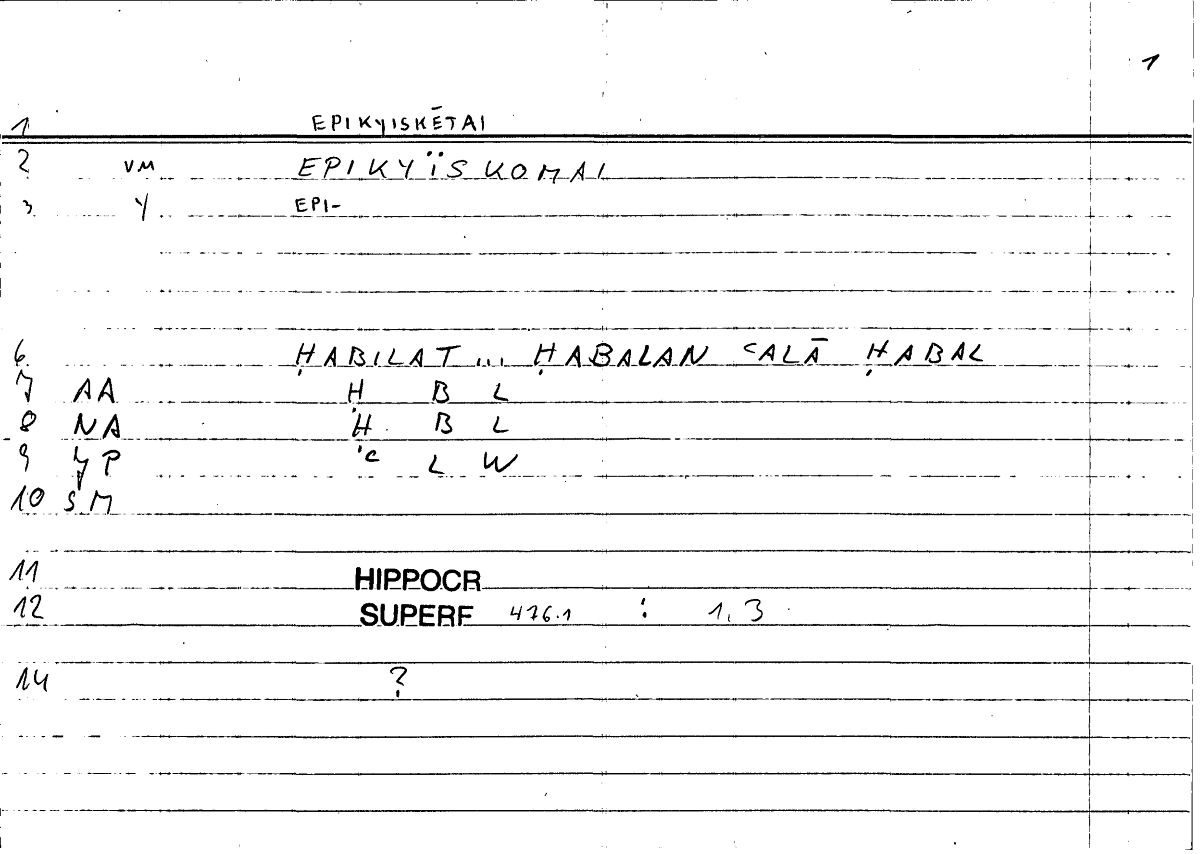 1
1 EPIKYISKĒTAI
2 VM EPIKYÏSKOMAI
3 Y EPI-
6 ḤABILAT ... ḤABALAN ʿALĀ ḤABAL
7 AA Ḥ B L
8 NA Ḥ B L
9 YP ʿ L W
10 SM
11 HIPPOCR
12 SUPERF 476.1 : 1,3
14 ?